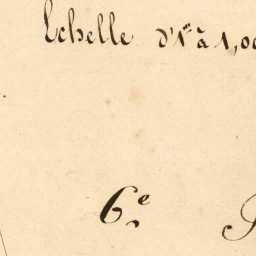 Echelle d'1m à 1,00
6e